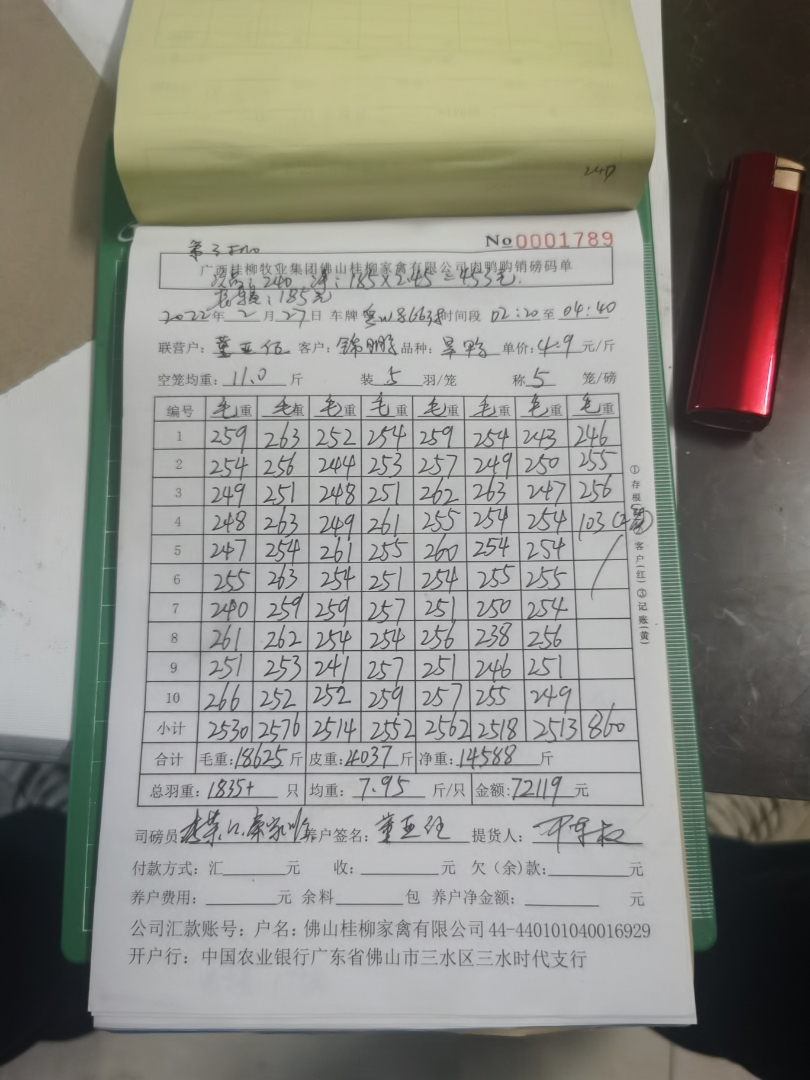 240
No 0001789
广西桂柳牧业集团佛山桂柳家禽有限公司肉鸭购销磅码单
次品:240 净:185×2.45=453元.
2022年2月27日 车牌 时间段 02:20至04:40
联营户:董亚伍 客户:锦鹏 品种: 单价:4.9元/斤
空笼均重:11.0斤 装5羽/笼 称5笼/磅
编号 毛重 毛重 毛重 毛重 毛重 毛重 毛重 毛重
1 259 263 252 254 259 254 243 246
2 254 256 244 253 257 249 250 255
3 249 251 248 251 262 263 247 256
4 248 263 249 261 255 254 254 103
5 247 254 261 255 260 254 254
6 255 263 254 251 254 255 255
7 240 259 259 257 251 250 254
8 261 262 254 254 256 238 256
9 251 253 241 257 251 246 251
10 266 252 252 259 257 255 249
小计 2530 2576 2514 2552 2562 2518 2513 860
合计 毛重:18625斤 皮重:4037斤 净重:14588斤
总羽重:1835+只 均重:7.95斤/只 金额:72119元
司磅员 养户签名:董亚伍 提货人:
付款方式:汇 元 收: 元 欠(余)款: 元
养户费用: 元 余料 包 养户净金额: 元
公司汇款账号:户名:佛山桂柳家禽有限公司44-440101040016929
开户行:中国农业银行广东省佛山市三水区三水时代支行
①存根 客户(红)③记账(黄)